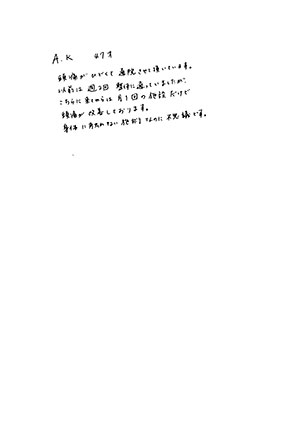 A.K 47才
頭痛がひどくて通院させて頂いています。
以前は週2回整体に通っていましたが、
こちらに来てからは月1回の施設だけで
頭痛が改善しております。
身体に負担のない施術なのに不思議です。